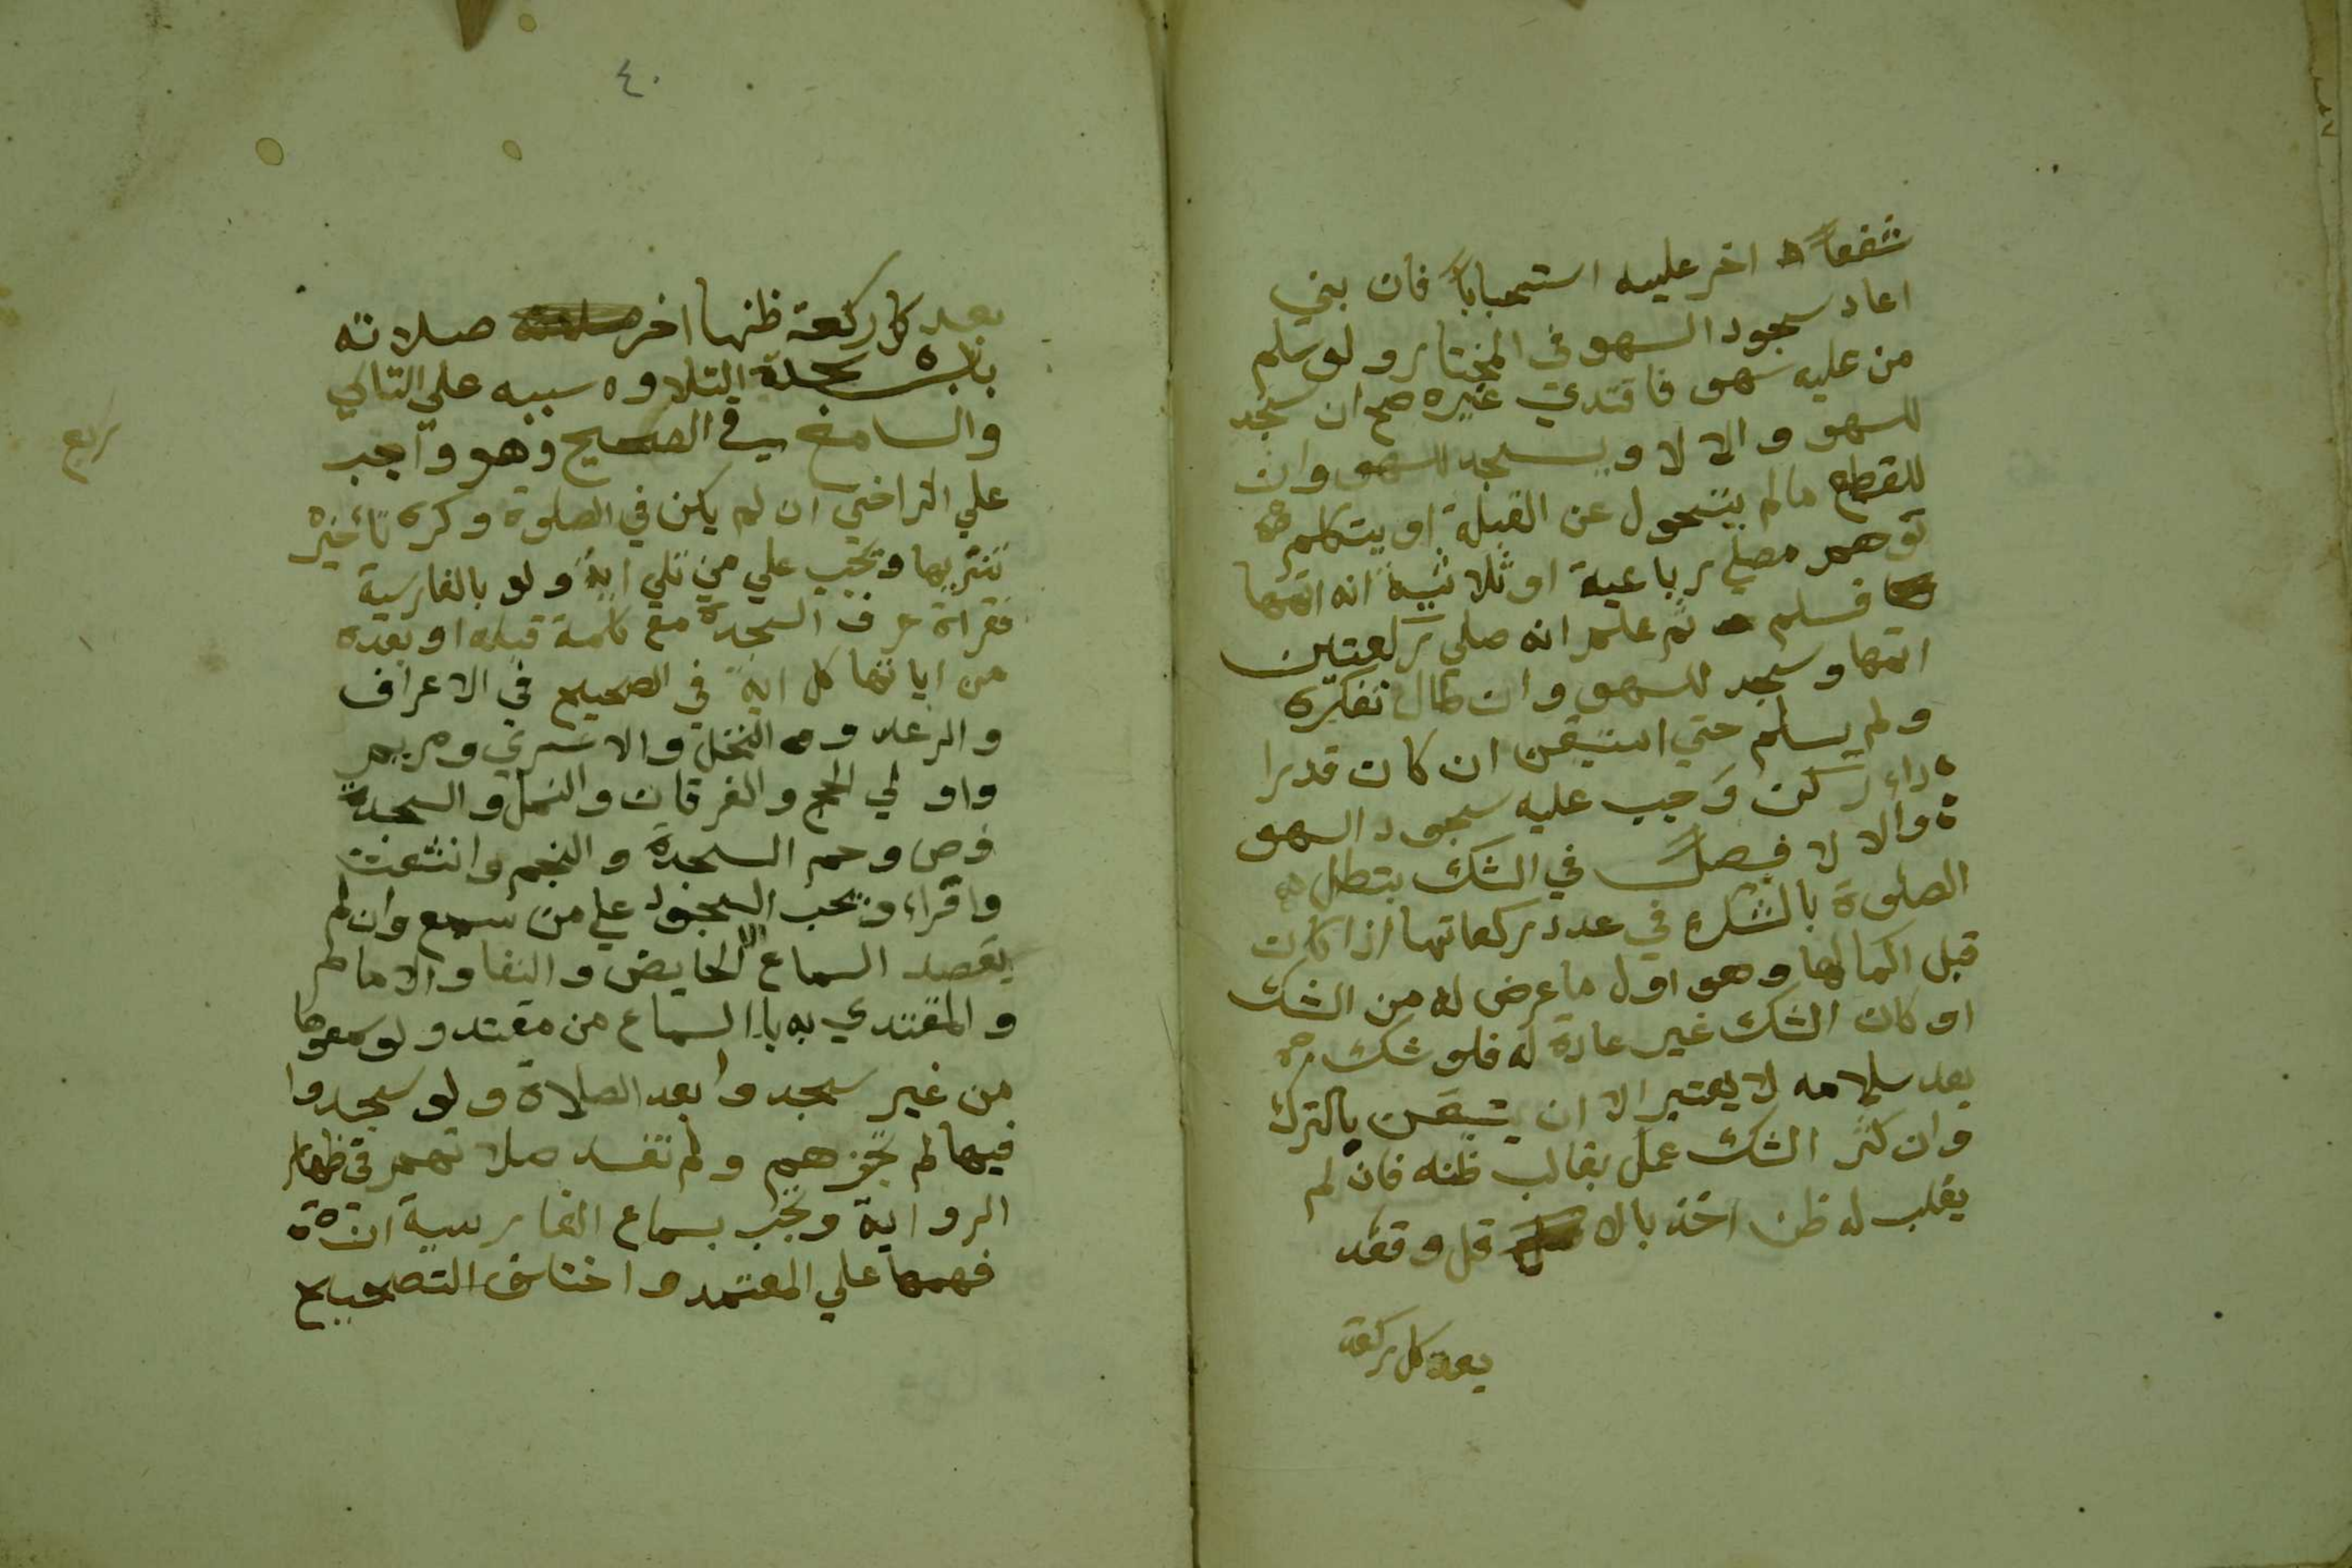 شفعاً اخر عليه استحباباً فان بني
اعاد سجود السهو في المختار ولو سلم
من عليه سهو فاقتدي غيره صح ان سجد
للسهو والا لا ويسجد للسهو وان
للقطع مالم يتحول عن القبلة او يتكلم
توهم مصلي رباعية او ثلاثية انه اتمها
فسلم ثم علم انه صلي ركعتين
اتمها وسجد للسهو وان طال تفكره
ولم يسلم حتي استيقن ان كان قدرا
داء ركن وجب عليه سجود السهو
والا لا فصل في الشك بتطل
الصلوة بالشك في عدد ركعاتها اذا كان
قبل اكمالها وهو اول ما عرض له من الشك
او كان الشك غير عادة له فلو شك
بعد سلامه لا يعتبر الا ان تيقن بالترك
وان كثر الشك عمل بغالب ظنه فان لم
يغلب له ظن اخذ بالا قل وقعد
بعد كل ركعة
٤٠
بعد كل ركعة ظنها اخر صلاته
باب سجدة التلاوه سببه علي التالي
والسامع في الصحيح وهو واجب
علي التراخي ان لم يكن في الصلوة وكره تأخيره
تنزيها وتجب علي من تلي اية ولو بالفارسية
فقراة حرف السجدة مع كلمة قبله او بعده
من اياتها كل اية في الصحيح في الاعراف
والرعد و النحل والاسري ومريم
واولي الحج والفرقان والنمل والسجدة
وص وحم السجدة والنجم وانشقت
واقراء وتجب السجود علي من سمع وان لم
يقصد السماع الا الحايض والنفا والامام
والمقتدي به با السماع من مقتد ولو سمعوها
من غير سجدوا بعد الصلاة ولو سجدوا
فيها لم تجزهم ولم تفسد صلاتهم في ظاهر
الرواية وتجب بسماع الفارسية ان
فهمها علي المعتمد واختلف التصحيح
ربع